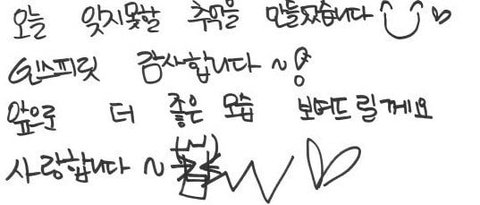 오늘 잊지못할 추억을 만들었습니다
인스피릿 감사합니다 ~
앞으로 더 좋은 모습 보여드릴께요
사랑합니다 ~